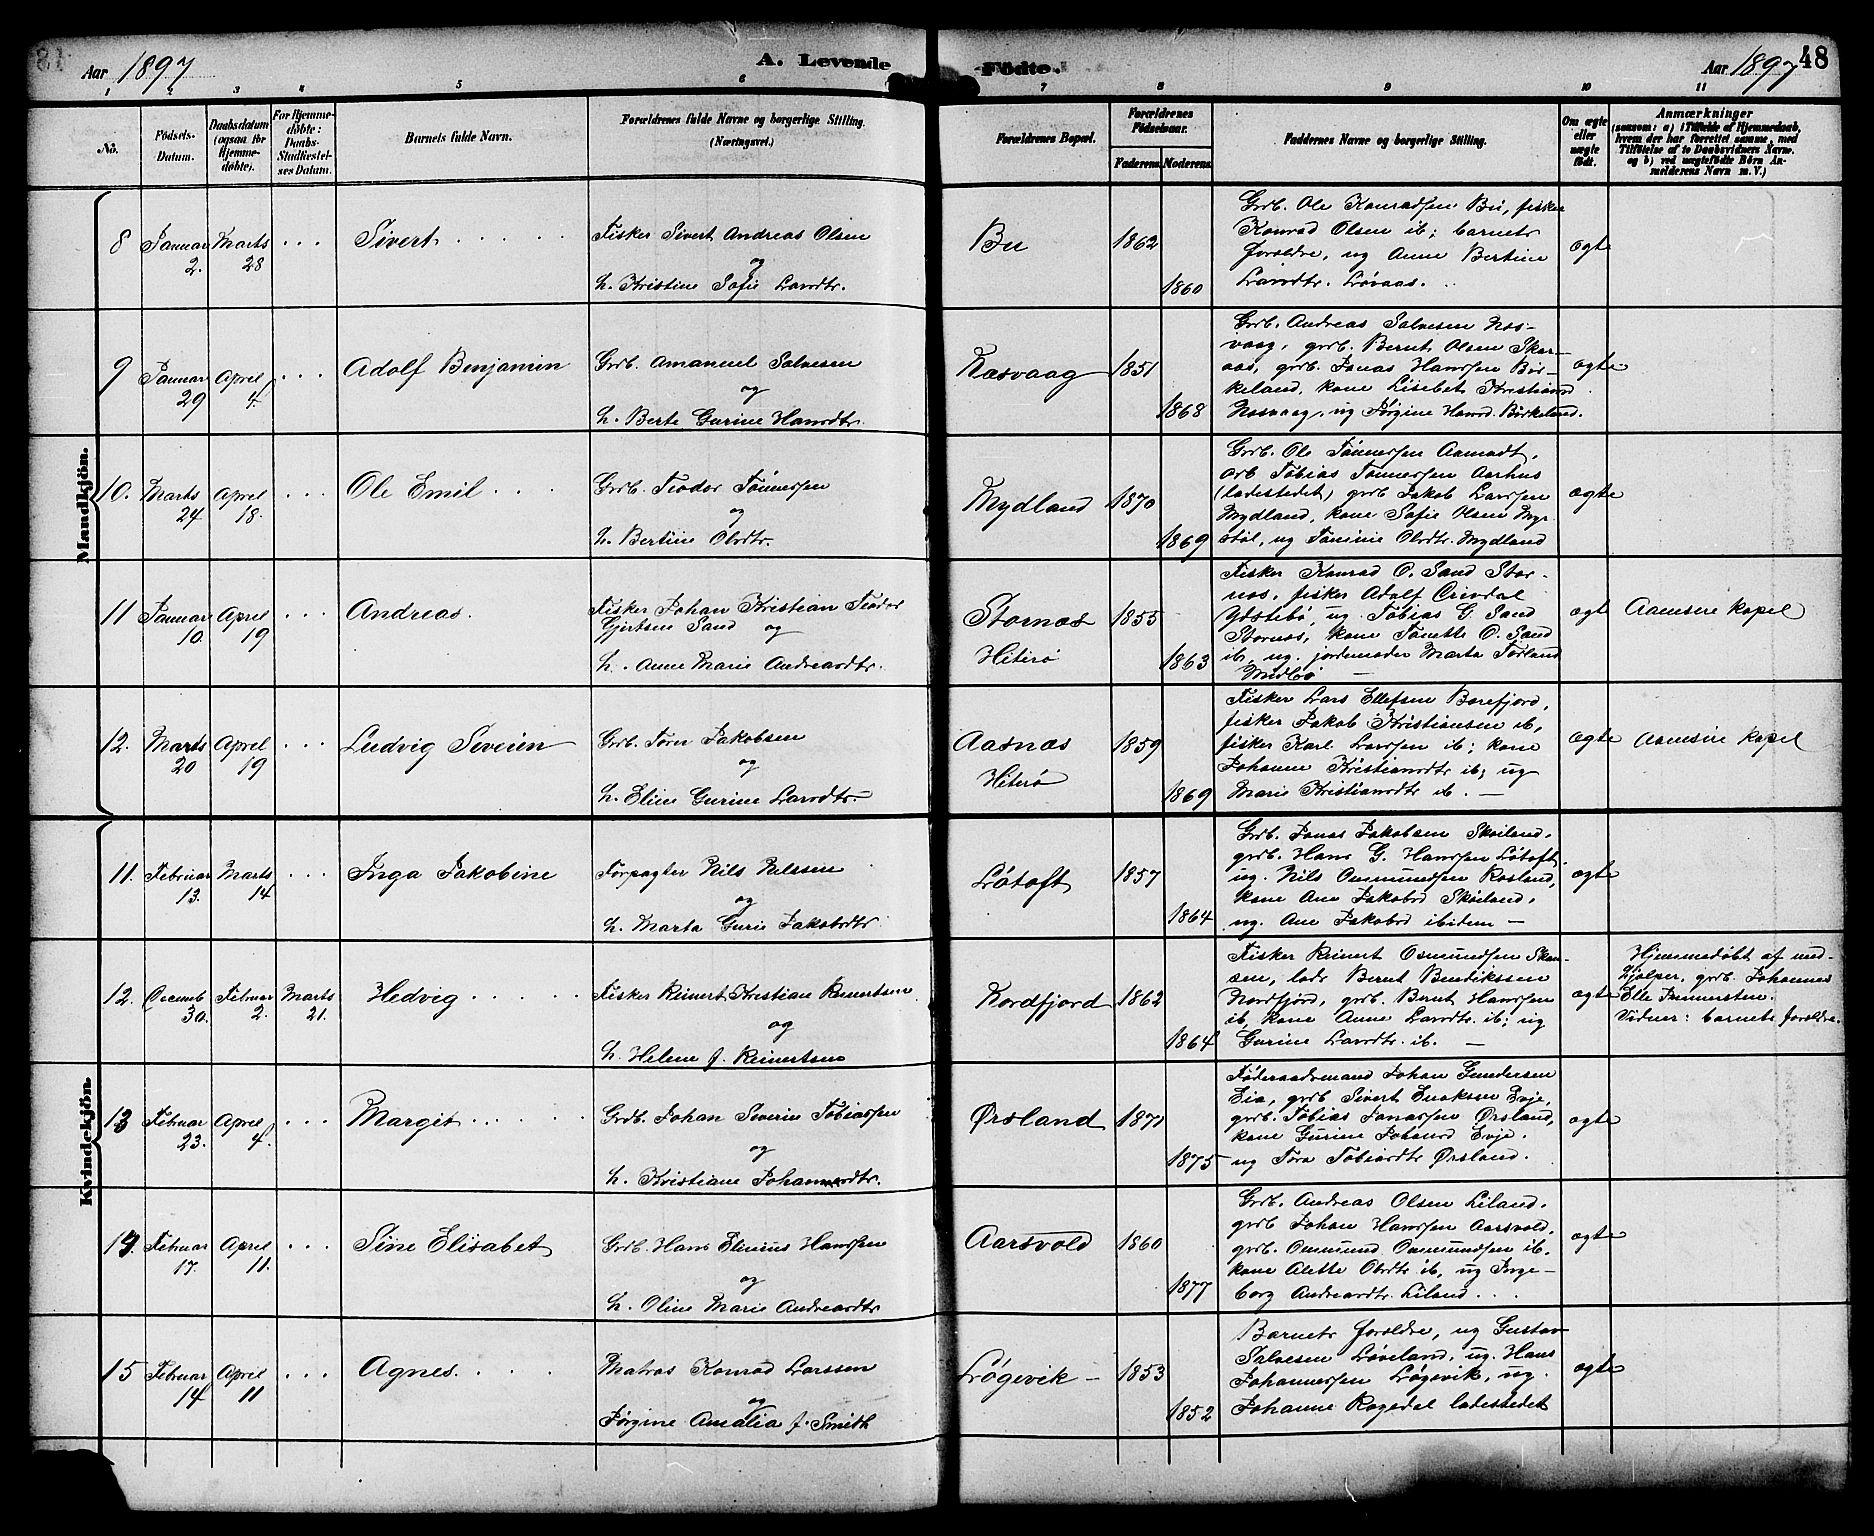 Aar 1897
A. Levende
Födte.
Aar 1897
48
1 2 3 4 5 6 7 8 9 10 11
No.
Födsels-
Datum.
Daabsdatum
(ogsaa for
Hjemme-
døbte).
For Hjemme-
døbte:
Daabs-
Stadfæstel-
ses Datum.
Barnets fulde Navn.
Forældrenes fulde Navne og borgerlige Stilling.
(Næringsvei.)
Forældrenes Bopæl.
Forældrenes
Födselsaar.
Faderens.
Moderens.
Faddernes Navne og borgerlige Stilling.
Om ægte
eller
uægte
födt.
Anmærkninger
(saasom: a) i Tilfælde af Hjemmedaab,
hvem der har forrettet samme, med
Tilföielse af to Daabsvidners Navne.
og b) ved uægtefödte Börn An-
melderens Navn m. V.)
Mandkjön.
8 Januar 2. Marts 28 . . . Sivert . . . . .
Fisker Sivert Andreas Olsen
og
h. Kristine Sofie Larsdtr.
Bu 1862 1860
Grb. Ole Konradsen Bu, fisker
Konrad Olsen ib; barnets
foreldre, ug Anne Bertine
Larsdtr. Løvaas. ..
egte
9 Januar 29 April 4. . . . Adolf Benjamin
Grb. Amanuel Salvesen
og
h. Berte Gurine Hansdtr.
Næsvaag 1851 1868
Grb. Andreas Salvesen Nes-
vaag, grb. Bernt Olsen Skar-
aas, grb. Jonas Hanssen Bir-
keland, kone Lisebet Kristiansd
Nesvaag, ug Jørgine Hansd. Birkeland.
egte
10. Marts 24 April 18. . . . Ole Emil . . .
Grb. Teodor Tønnessen
og
h. Bertine Olsdtr.
Mydland 1870 1869
Grb. Ole Tønnessen Aamodt,
arb Tobias Tønnessen Aarhus
(ladestedet) grb Jakob Larssen
Mydland, kone Sofie Olsen Myr-
støl, ug Tomine Olsdtr. Mydland
egte
11 Januar 10. April 19 . . . Andreas.
Fisker Johan Kristian Teodor
Gjertsen Sand og
h. Anne Marie Andreasdtr.
Stornæs
Hiterø 1855 1863
Fisker Konrad O. Sand Stor-
nes, fisker Adolf
Ydstebø, ug. Tobias G. Sand
Stornes, kone Tonette O. Sand
ib, ug. jordemoder Marta Torland
Midbø —
egte Aamsire kapel
12. Marts 20 April 19 . . . Ludvig Severin
Grb. Tore Jakobsen
og
h. Eline Gurine Larsdtr.
Aasnæs
Hiterø 1859 1869
Fisker Lars Ellefsen Borefjord,
fisker Jakob Kristiansen ib,
fisker Karl Larssen ib; kone
Johanne Kristiansdtr ib; ug
Marie Kristiansdtr ib. —
egte Aamsire kapel
Kvindekjön.
11. Februar 13. Marts 14 . . . Inga Jakobine
Forpagter Nils Nilssen
og
h. Marta Gurie Jakobsdtr
Løtoft 1857 1864
Grb. Jonas Jakobsen Skoiland,
grb. Hans G. Hanssen Løtoft,
ug. Nils Ommundsen Rosland,
kone Ane Jakobsd Skoiland,
ug. Ane Jakobsd ibidem —
egte
12. Decemb 30. Februar 2. Marts 21. Hedvig . . . . .
Fisker Reinert Kristian Reinertsen
og
h. Helene f. Reinertsen
Nordfjord 1862 1864
Fisker Reinert Osmundsen Skan-
sen, lods Bernt Bendikssen
Nordfjord, grb. Bernt Hanssen
ib, kone Anne Larsdtr. ib; ug
Gurine Larsdtr. ib. —
egte
Hjemmedøbt af med-
hjælper, grb. Johannes
Elle
Vidner: barnets foreldre.
13 Februar 23. April 4. . . . Margit . . . . .
Grdb. Johan Severin Tobiassen
og
h. Kristiane Johannesdtr.
Ørsland 1871 1875
Føderaadsmand Johan Gundersen
Eia, grb Sivert Eriksen Evje,
grb. Tobias Jonassen Ørsland,
kone Gurine Johansd Evje.
ug Tora Tobiasdtr Ørsland.
egte
14. Februar 17. April 11. . . . Sine Elisabet
Grb. Hans Elenius Hanssen
og
h. Oline Marie Andreasdtr
Aarsvold 1860 1877
Grb. Andreas Olsen Liland,
grb Johan Hanssen Aarsvold,
grb. Ommund Ommundsen ib.
kone Alette Olsdtr ib, ug Inge-
borg Andreasdtr. Liland. . .
egte
15 Februar 14 April 11 . . . Agnes. . . . .
Matros Konrad Larssen
og
Jørgine Amalia f. Smith
Løgevik — 1853 1852
Barnets foreldre, ug Gustav
Salvesen Løveland, ug. Hans
Johannessen Løgevik, ug.
Johanne Rogedal ladestedet
egte